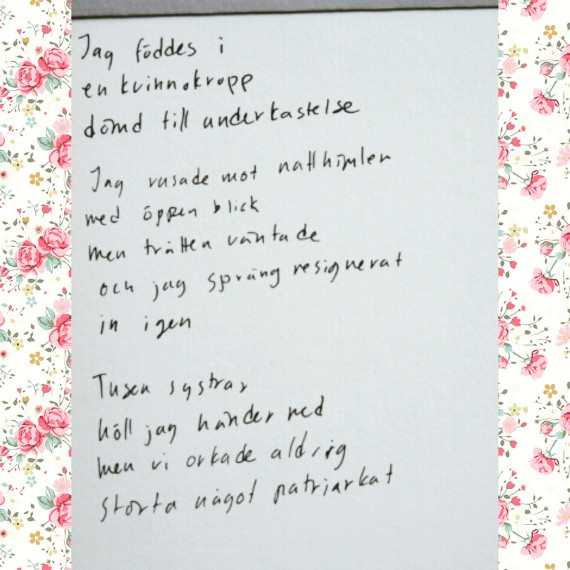 Jag föddes i
en kvinnokropp
dömd till underkastelse
Jag rusade mot natthimlen
med öppen blick
men tvätten väntade
och jag sprang resignerat
in igen
Tusen systrar
höll jag händer med
men vi orkade aldrig
störta något patriarkat